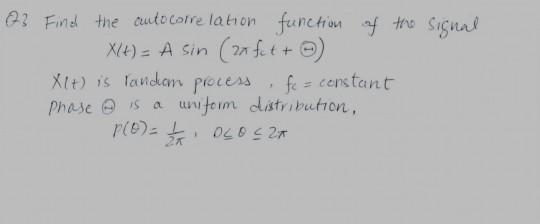 Q3 Find the autocorrelation function of the signal
X(t) = A sin (2π fc t + Θ)
X(t) is random process , fc = constant
Phase Θ is a uniform distribution,
P(θ) = 1/2π , 0 ≤ θ ≤ 2π